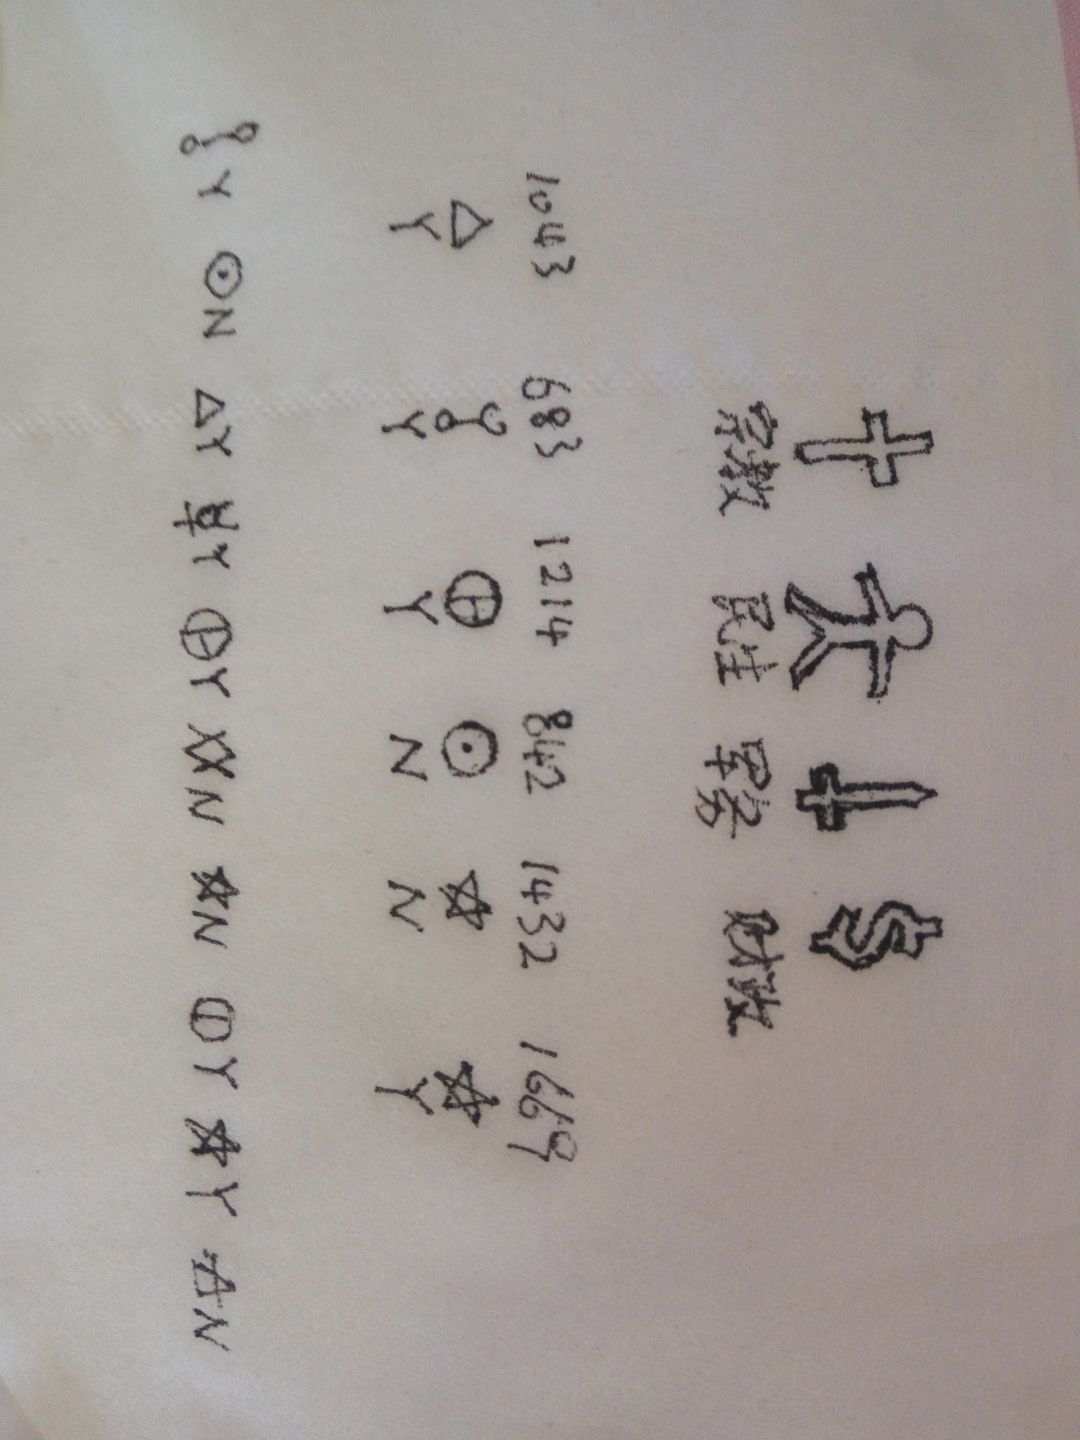 宗教 民生 军务 财政
1043 683 1214 842 1432 1669
Y Y Y N N Y
Y N Y Y Y N N Y Y N